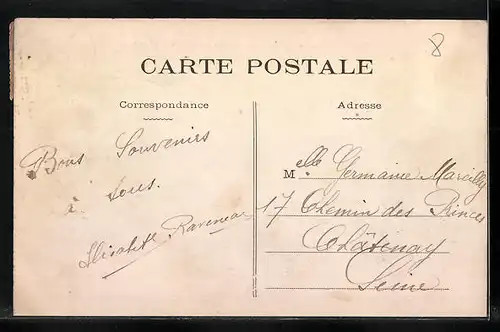 8
CARTE POSTALE
Correspondance
Adresse
Bons Souvenirs
à tous.
Elisabeth
Melle Germaine
17 Chemin des Princes
Châtenay
Seine